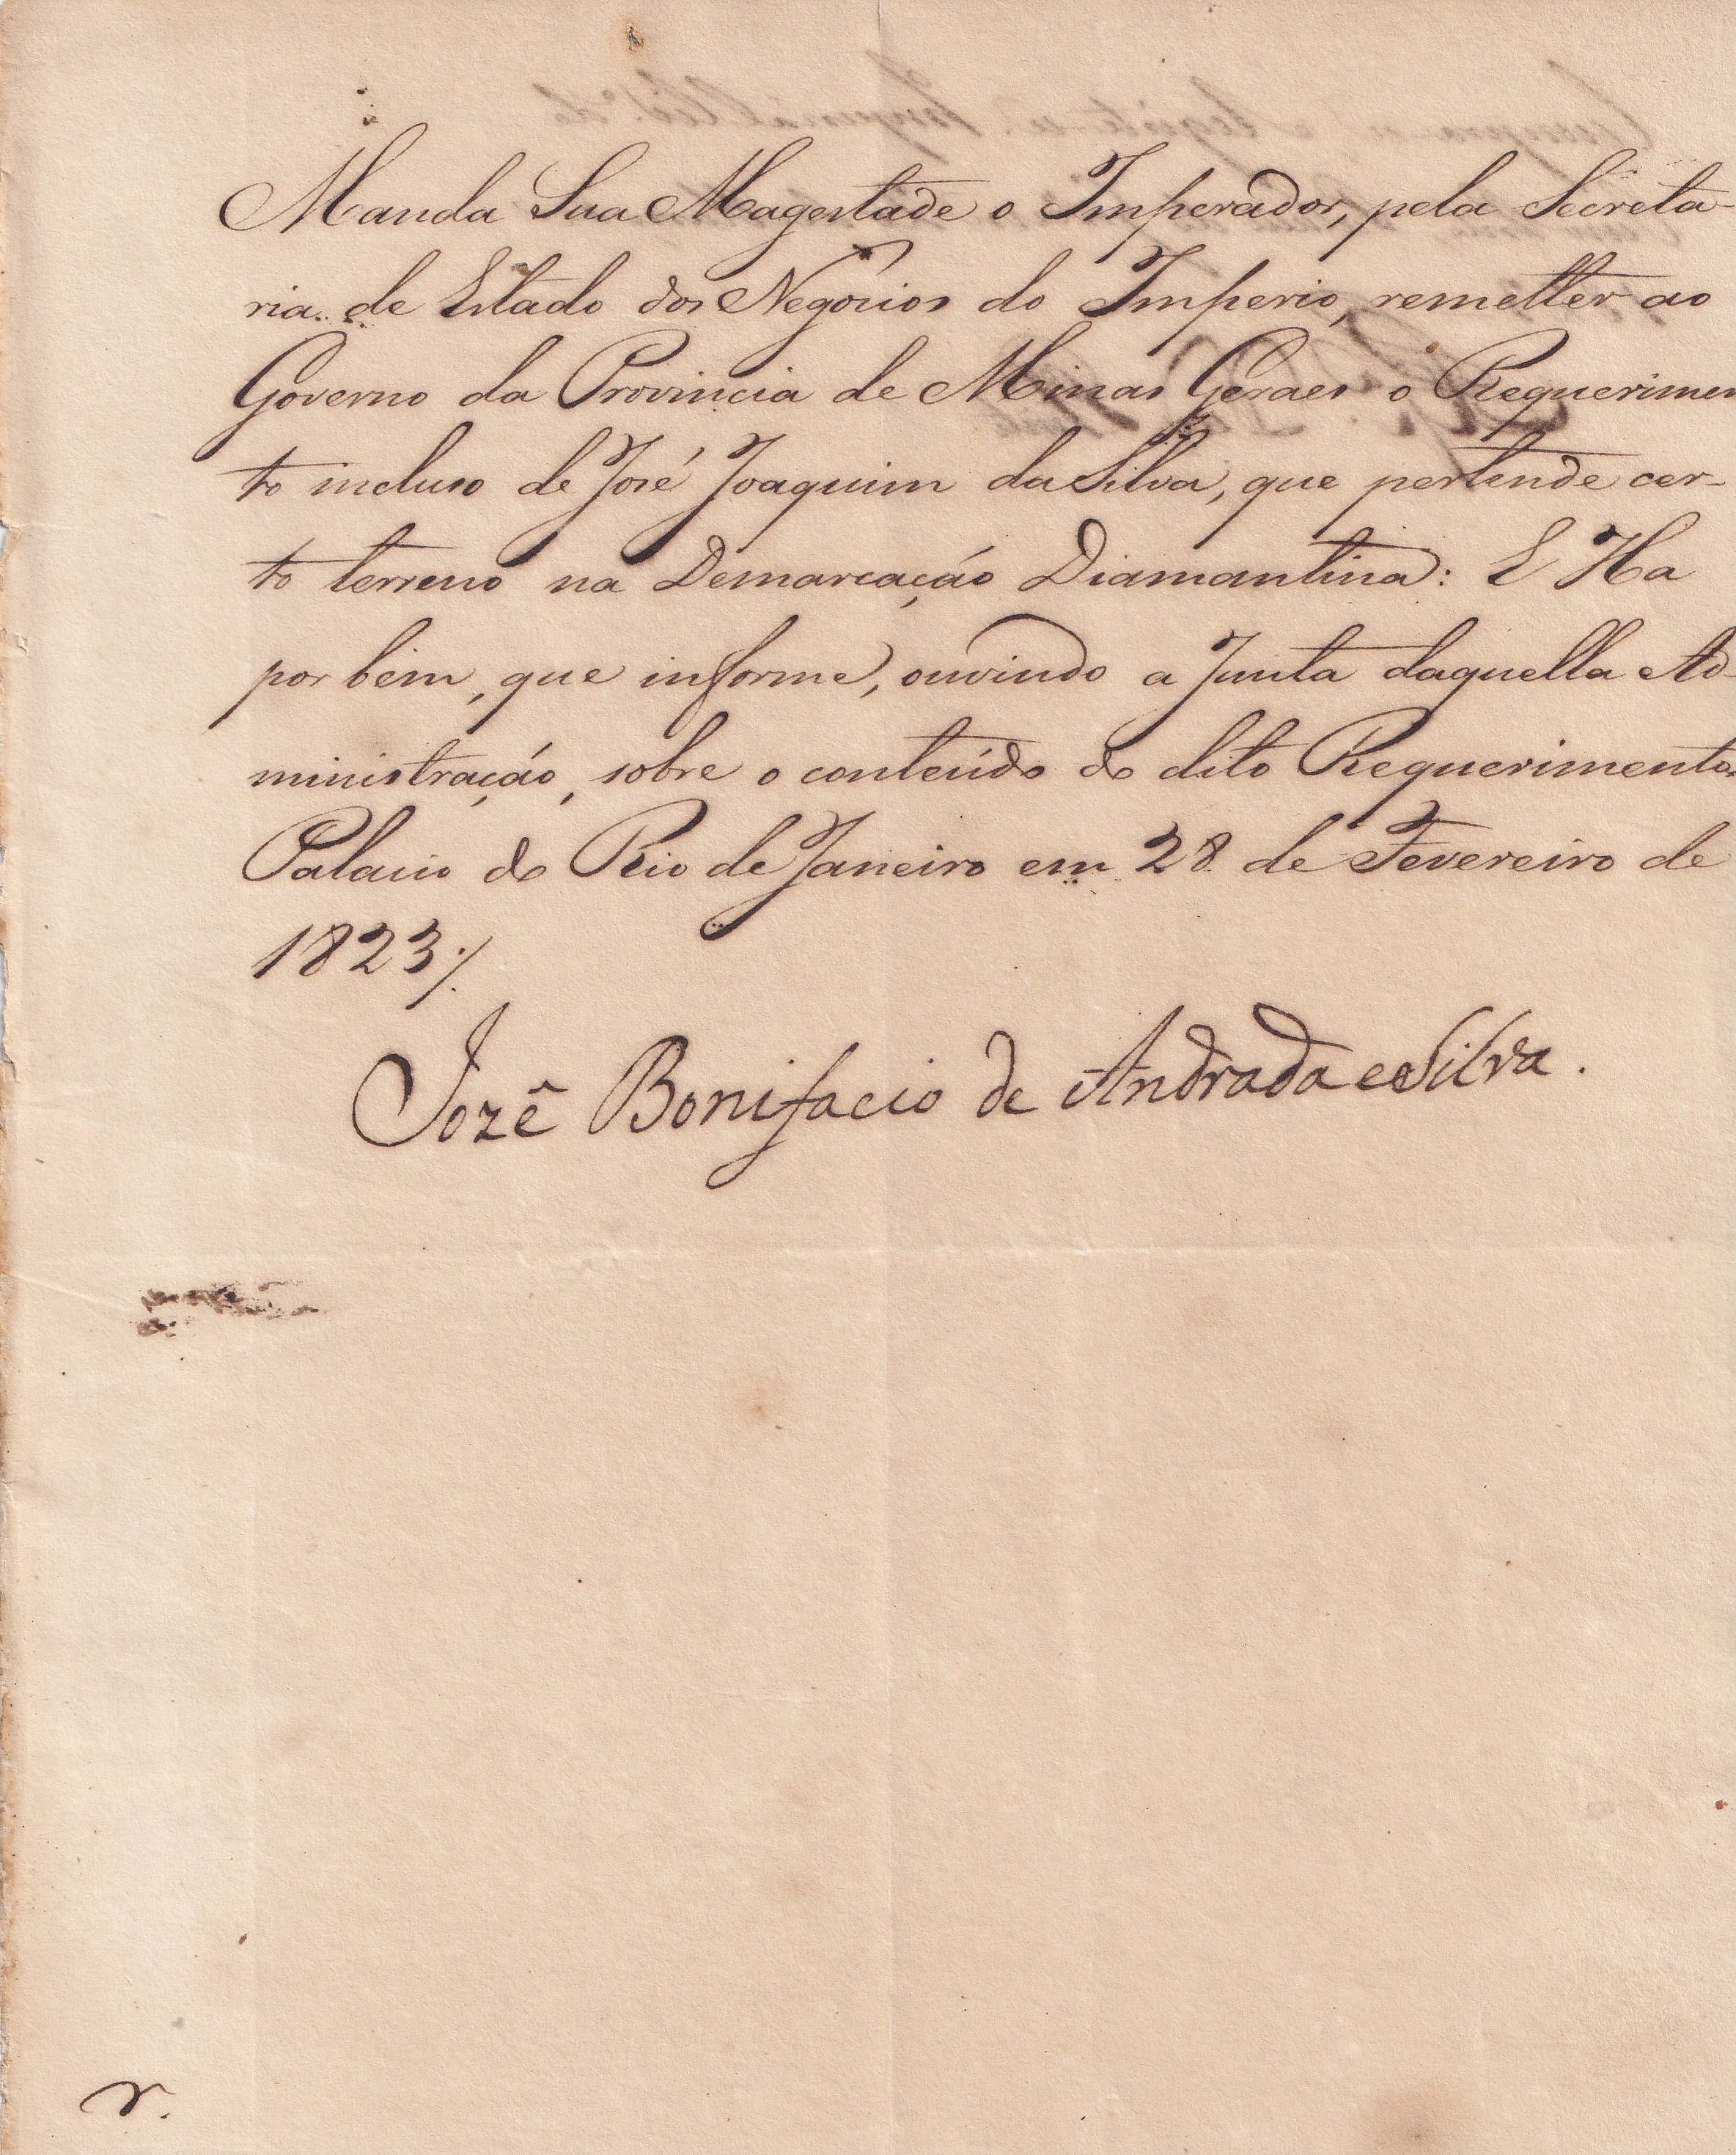 Manda Sua Magestade o Imperador, pela Secreta-
ria de Estado dos Negocios do Imperio, remetter ao
Governo da Provincia de Minas Geraes o Requerimen
to incluso de José Joaquim da Silva, que pertende cer-
to terreno na Demarcação Diamantina: E Ha
por bem, que informe, ouvindo a Junta daquella Ad-
ministração, sobre o conteúdo do dito Requerimento.
Palacio do Rio de Janeiro em 28 de Fevereiro de
1823
Jozê Bonifacio de Andrada e Silva.
r.